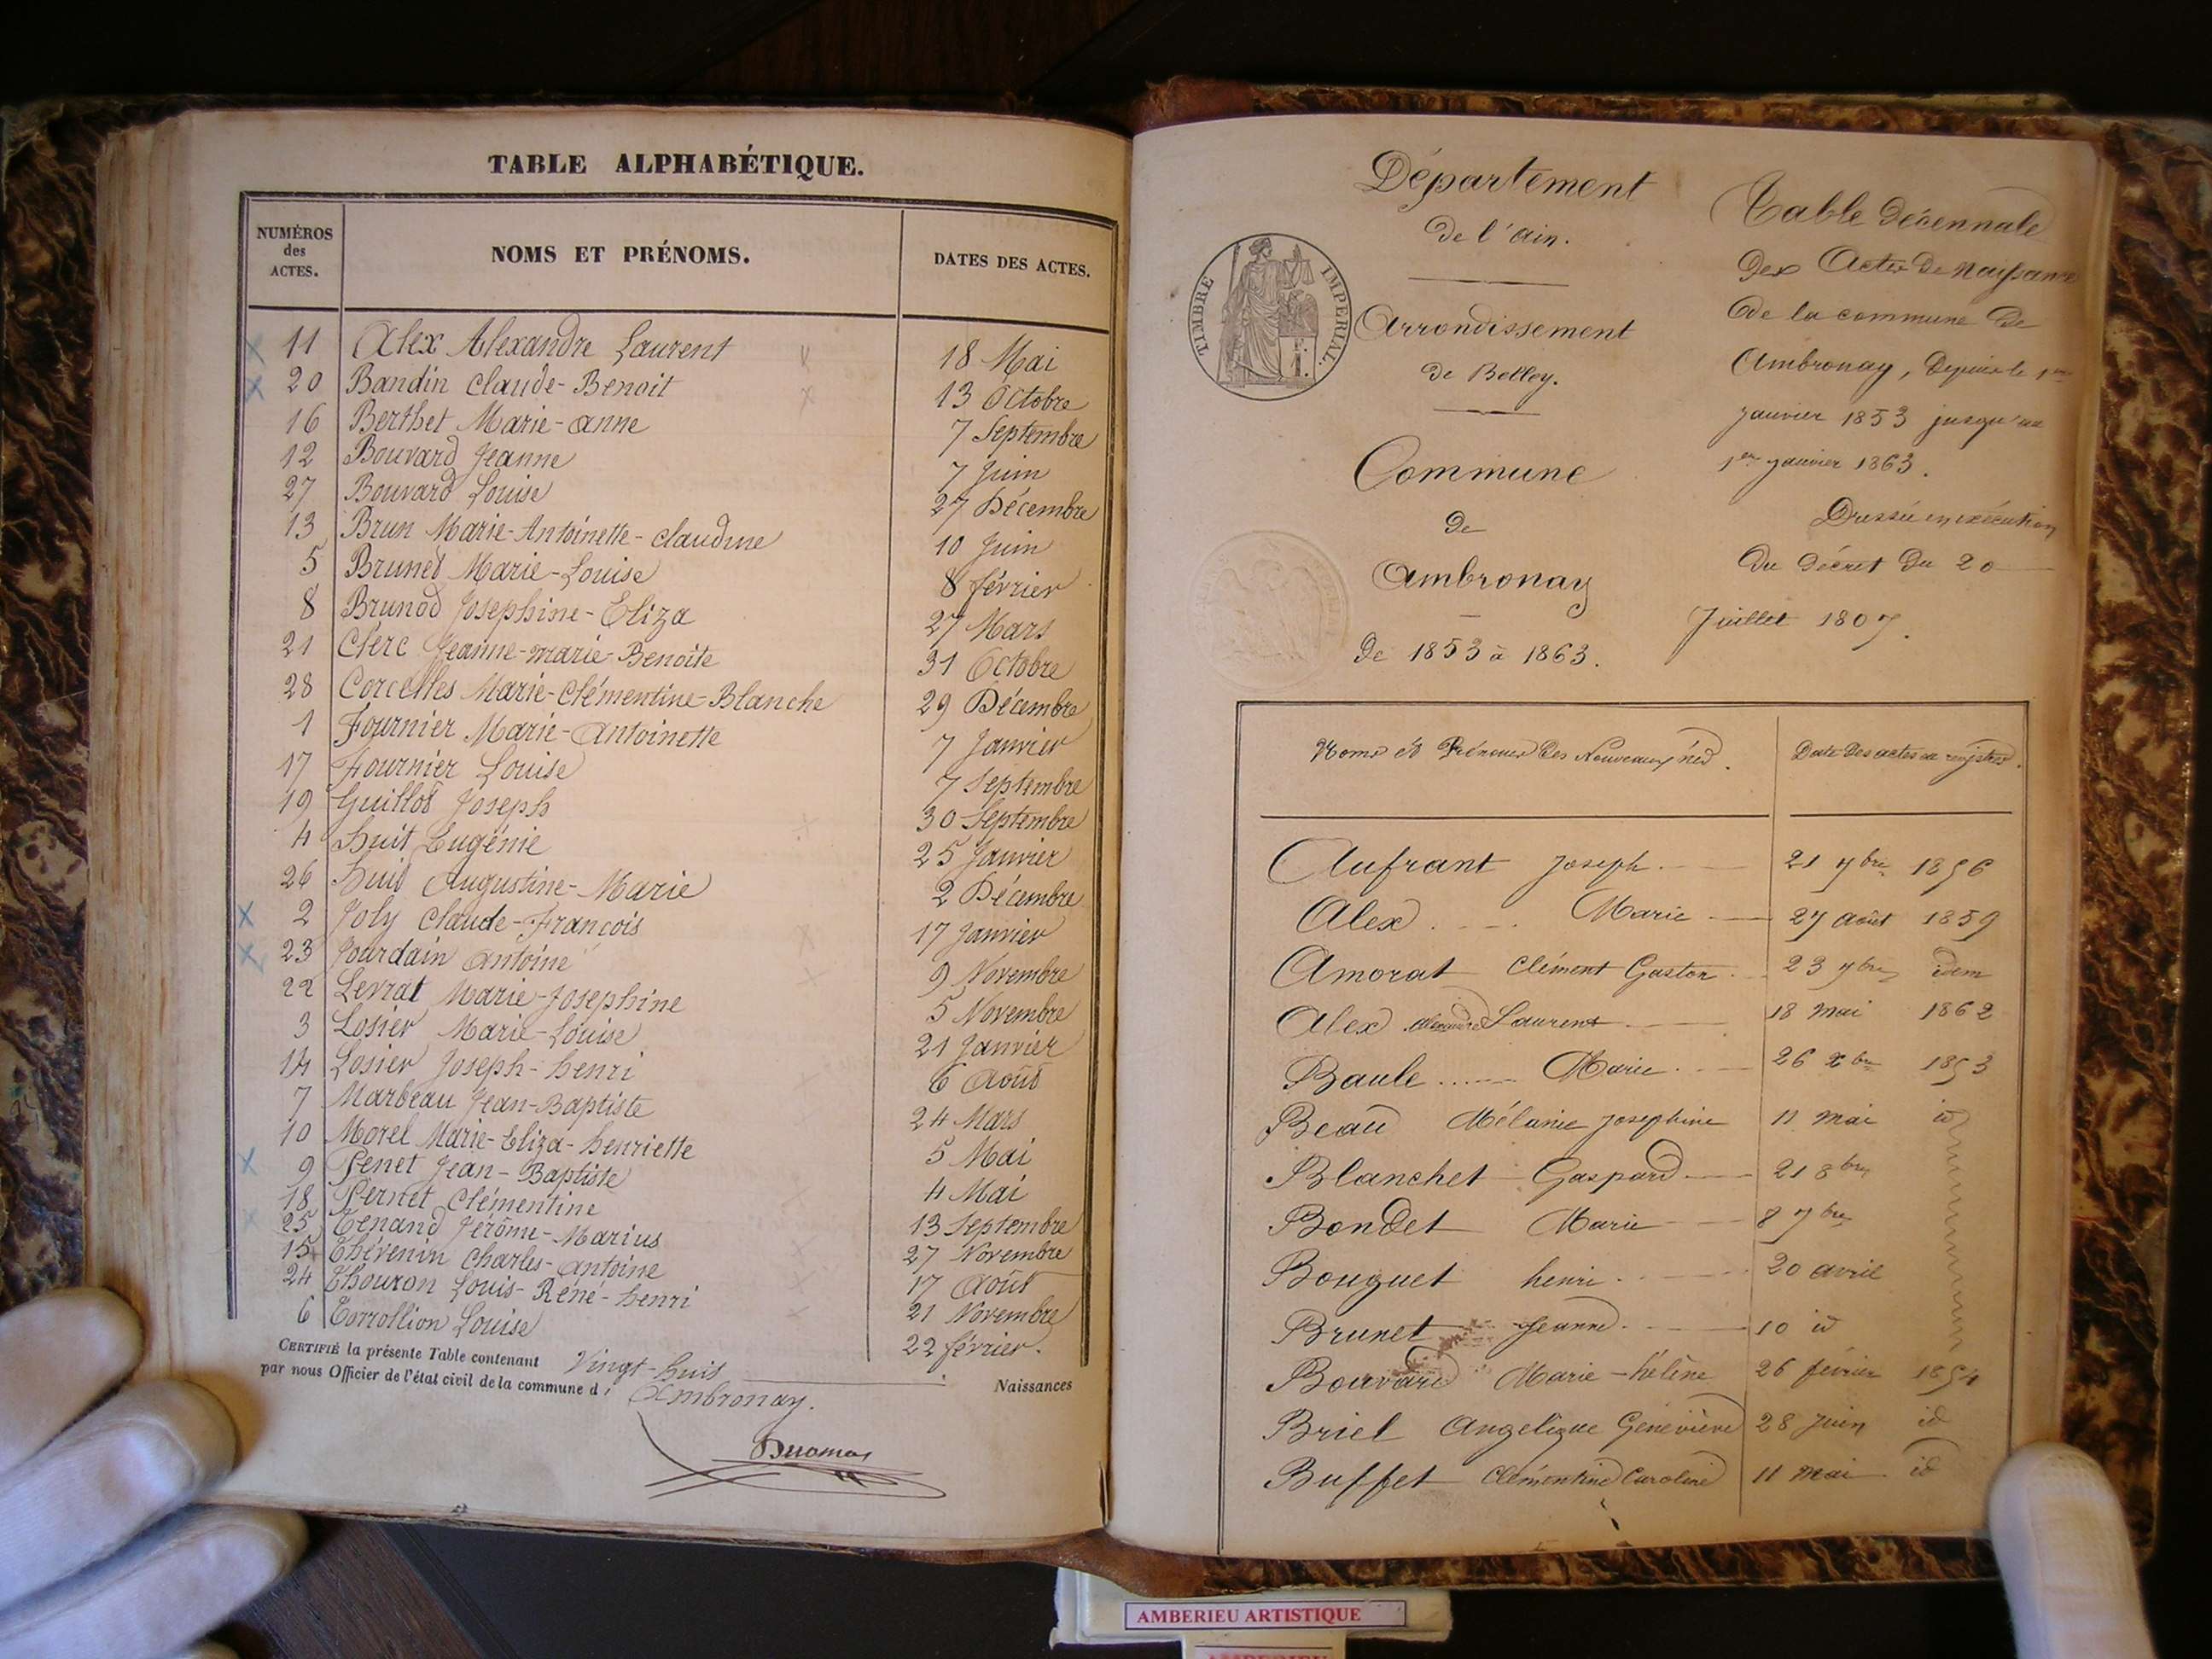 TABLE ALPHABÉTIQUE.
NUMÉROS des ACTES.
NOMS ET PRÉNOMS.
DATES DES ACTES.
11 Alex Alexandre Laurent 18 Mai
20 Bandin Claude-Benoit 13 Octobre
16 Berthet Marie-Anne 7 Septembre
12 Bouvard Jeanne 7 Juin
27 Bouvard Louise 27 Décembre
13 Brun Marie-Antoinette-Claudine 10 Juin
5 Brunet Marie-Louise 8 février
8 Brunod Josephine-Eliza 27 Mars
21 Clerc Jeanne-marie-Benoite 31 Octobre
28 Corcelles Marie-Clémentine-Blanche 29 Décembre
1 Fournier Marie-Antoinette 7 Janvier
17 Fournier Louise 7 Septembre
19 Guillot Joseph 30 Septembre
4 Huit Eugénie 25 Janvier
26 Huit Augustine-Marie 2 Décembre
2 Joly Claude-François 17 Janvier
23 Jourdain Antoine 9 Novembre
22 Levrat Marie-Josephine 5 Novembre
3 Losier Marie-Louise 21 Janvier
14 Losier Joseph-henri 6 Août
7 Marbeau Jean-Baptiste 24 Mars
10 Morel Marie-Eliza-henriette 5 Mai
9 Penet Jean-Baptiste 4 Mai
18 Pernet Clémentine 13 Septembre
25 Tenand Jérôme-Marius 27 Novembre
15 Thévenin Charles-Antoine 17 Août
24 Thouron Louis-René-henri 21 Novembre
6 Torrollion Louise 22 février.
CERTIFIÉ la présente Table contenant Vingt-huit Naissances
par nous Officier de l'état civil de la commune d' Ambronay.
Département
de l'Ain.
Arrondissement
de Belley.
Commune
de
Ambronay
de 1853 à 1863.
TIMBRE IMPERIAL.
Table décennale
des Actes de Naissance
de la commune de
Ambronay, depuis le 1er
janvier 1853 jusqu'au
1er janvier 1863.
Dressée en exécution
du décret du 20
Juillet 1807.
Noms et Prénoms des Nouveaux nés.
Date des actes au registre.
Aufrant Joseph. 21 7bre 1856
Alex Marie 27 août 1859
Amorat Clément Gaston 23 7bre idem
Alex Alexandre Laurent 18 mai 1862
Baule Marie 26 xbre 1853
Beau Mélanie Josephine 11 mai id
Blanchet Gaspard 21 8bre
Bondet Marie 8 7bre
Bouguet henri 20 avril
Brunet Jeanne 10 id
Bouvard Marie-hélène 26 février 1854
Briel Angelique Geneviève 28 juin id
Buffet Clémentine Caroline 11 mai id
AMBERIEU ARTISTIQUE
AMBERIEU